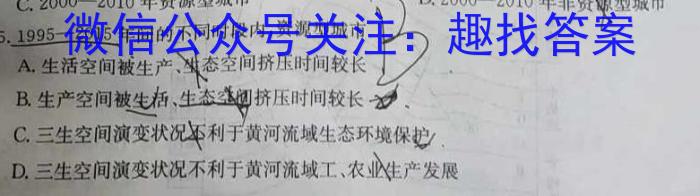 C. 2000—2010年资源型城市 D. 2000—2010年非资源型城市
微信公众号关注：趣找答案
5. 1995—2015年间的不同时段内，资源型城市
A. 生活空间被生产、生态空间挤压时间较长
B. 生产空间被生活、生态空间挤压时间较长
C. 三生空间演变状况不利于黄河流域生态环境保护
D. 三生空间演变状况不利于黄河流域工、农业生产发展